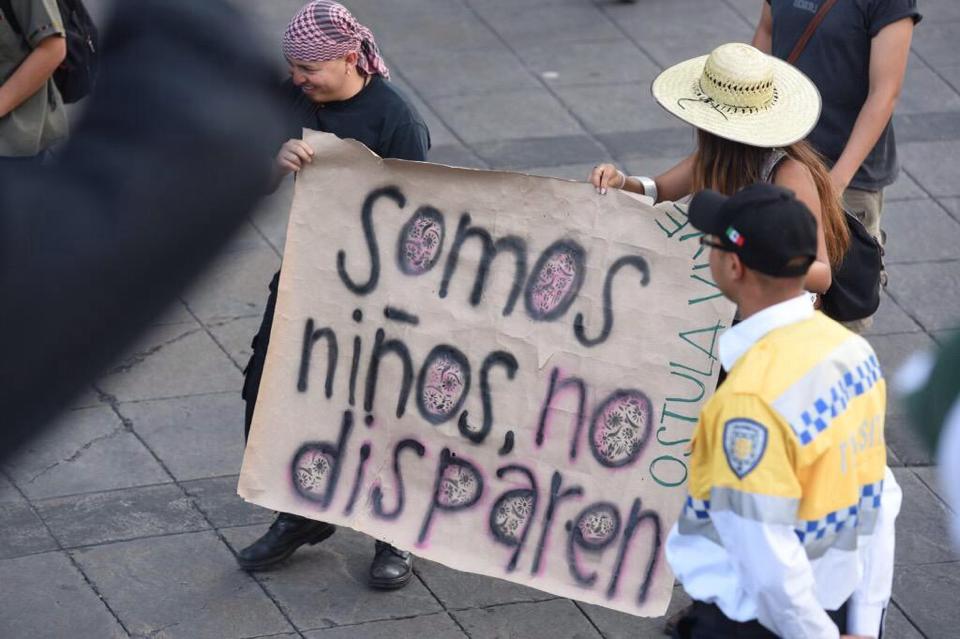 somos
niños, no
disparen
OSTULA VIVE